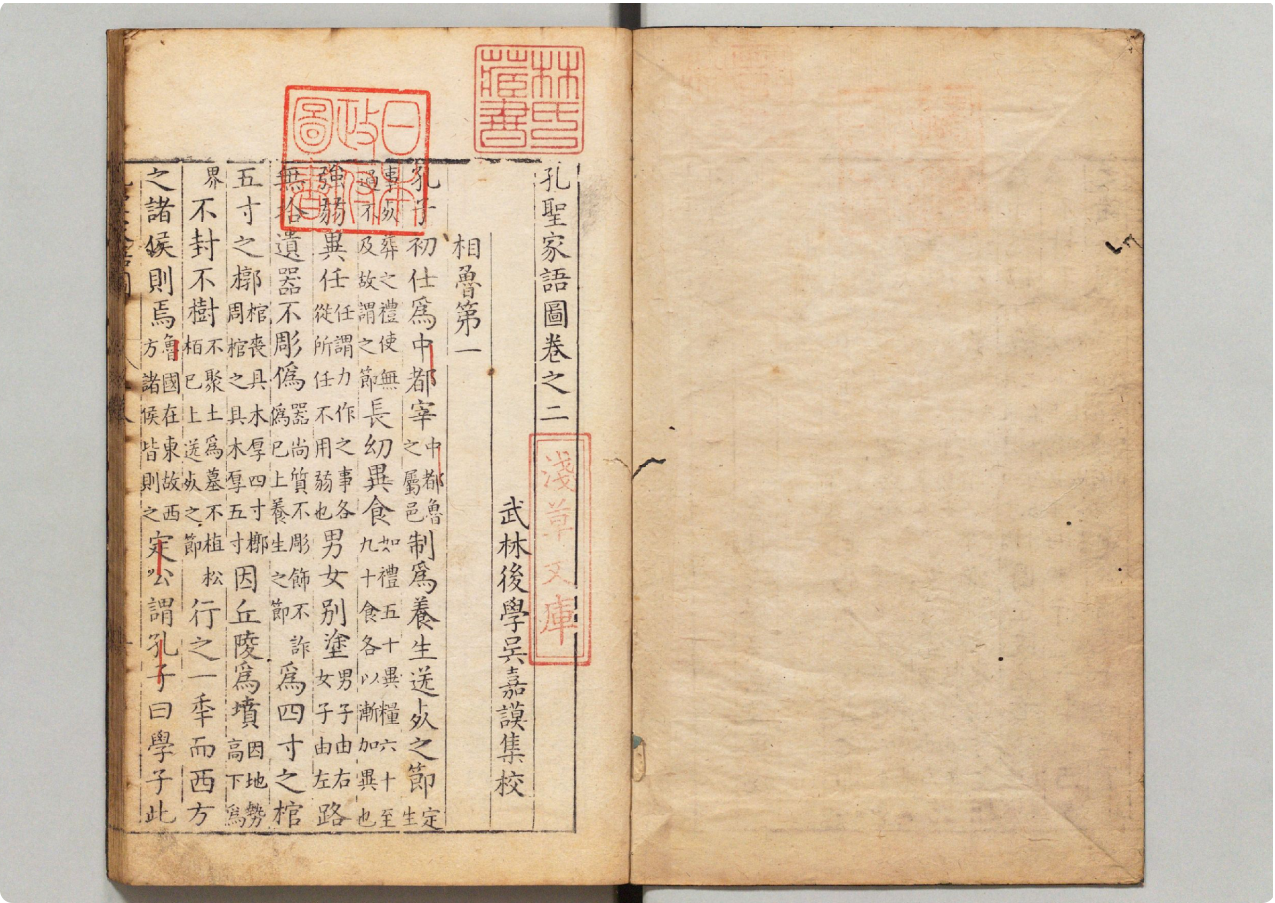 林氏藏書
日本政府圖書
淺草文庫
孔聖家語圖卷之二
武林後學吳嘉謨集校
相魯第一
孔子初仕爲中都宰中都魯之屬邑制爲養生送死之節定生
事死葬之禮使無過不及故謂之節長幼異食如禮五十異糧六十至九十食各以漸加異也
強弱異任任謂力作之事各從所任不用弱也男女別塗男子由右女子由左路
無拾遺器不彫僞器尚質不彫飾不詐僞已上養生之節爲四寸之棺
五寸之槨棺喪具木厚四寸槨周棺之具木厚五寸因丘陵爲墳因地勢高下爲
界不封不樹不聚土爲墓不植松栢已上送死之節行之一秊而西方
之諸侯則焉魯國在東故西方諸侯皆則之定公謂孔子曰學子此